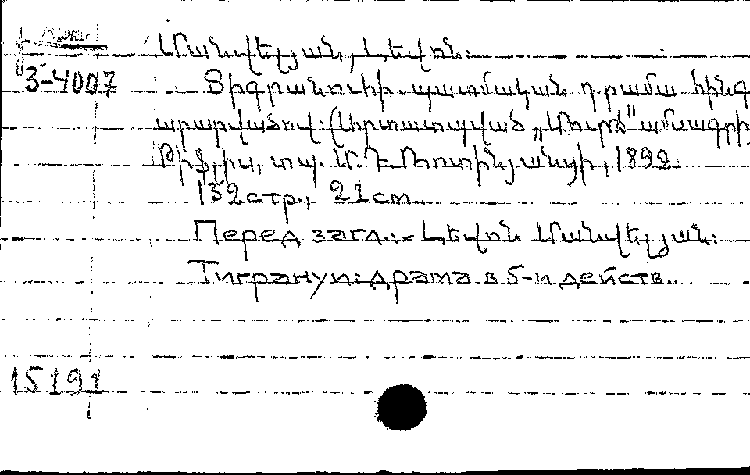 Մանվելյան, Լեվոն.
3-4007 Տիգրանուհի. պատմական դրամա հինգ
արարվածով: (Արտատպված „Մուրճ" ամսագրի
Թիֆլիս, տպ. Մ. Դ. Ռոտինյանցի, 1892.
132 стр., 21 см
Перед загл.: Լեվոն Մանվելյան:
Тигрануи: драма в 5-и действ.
15191